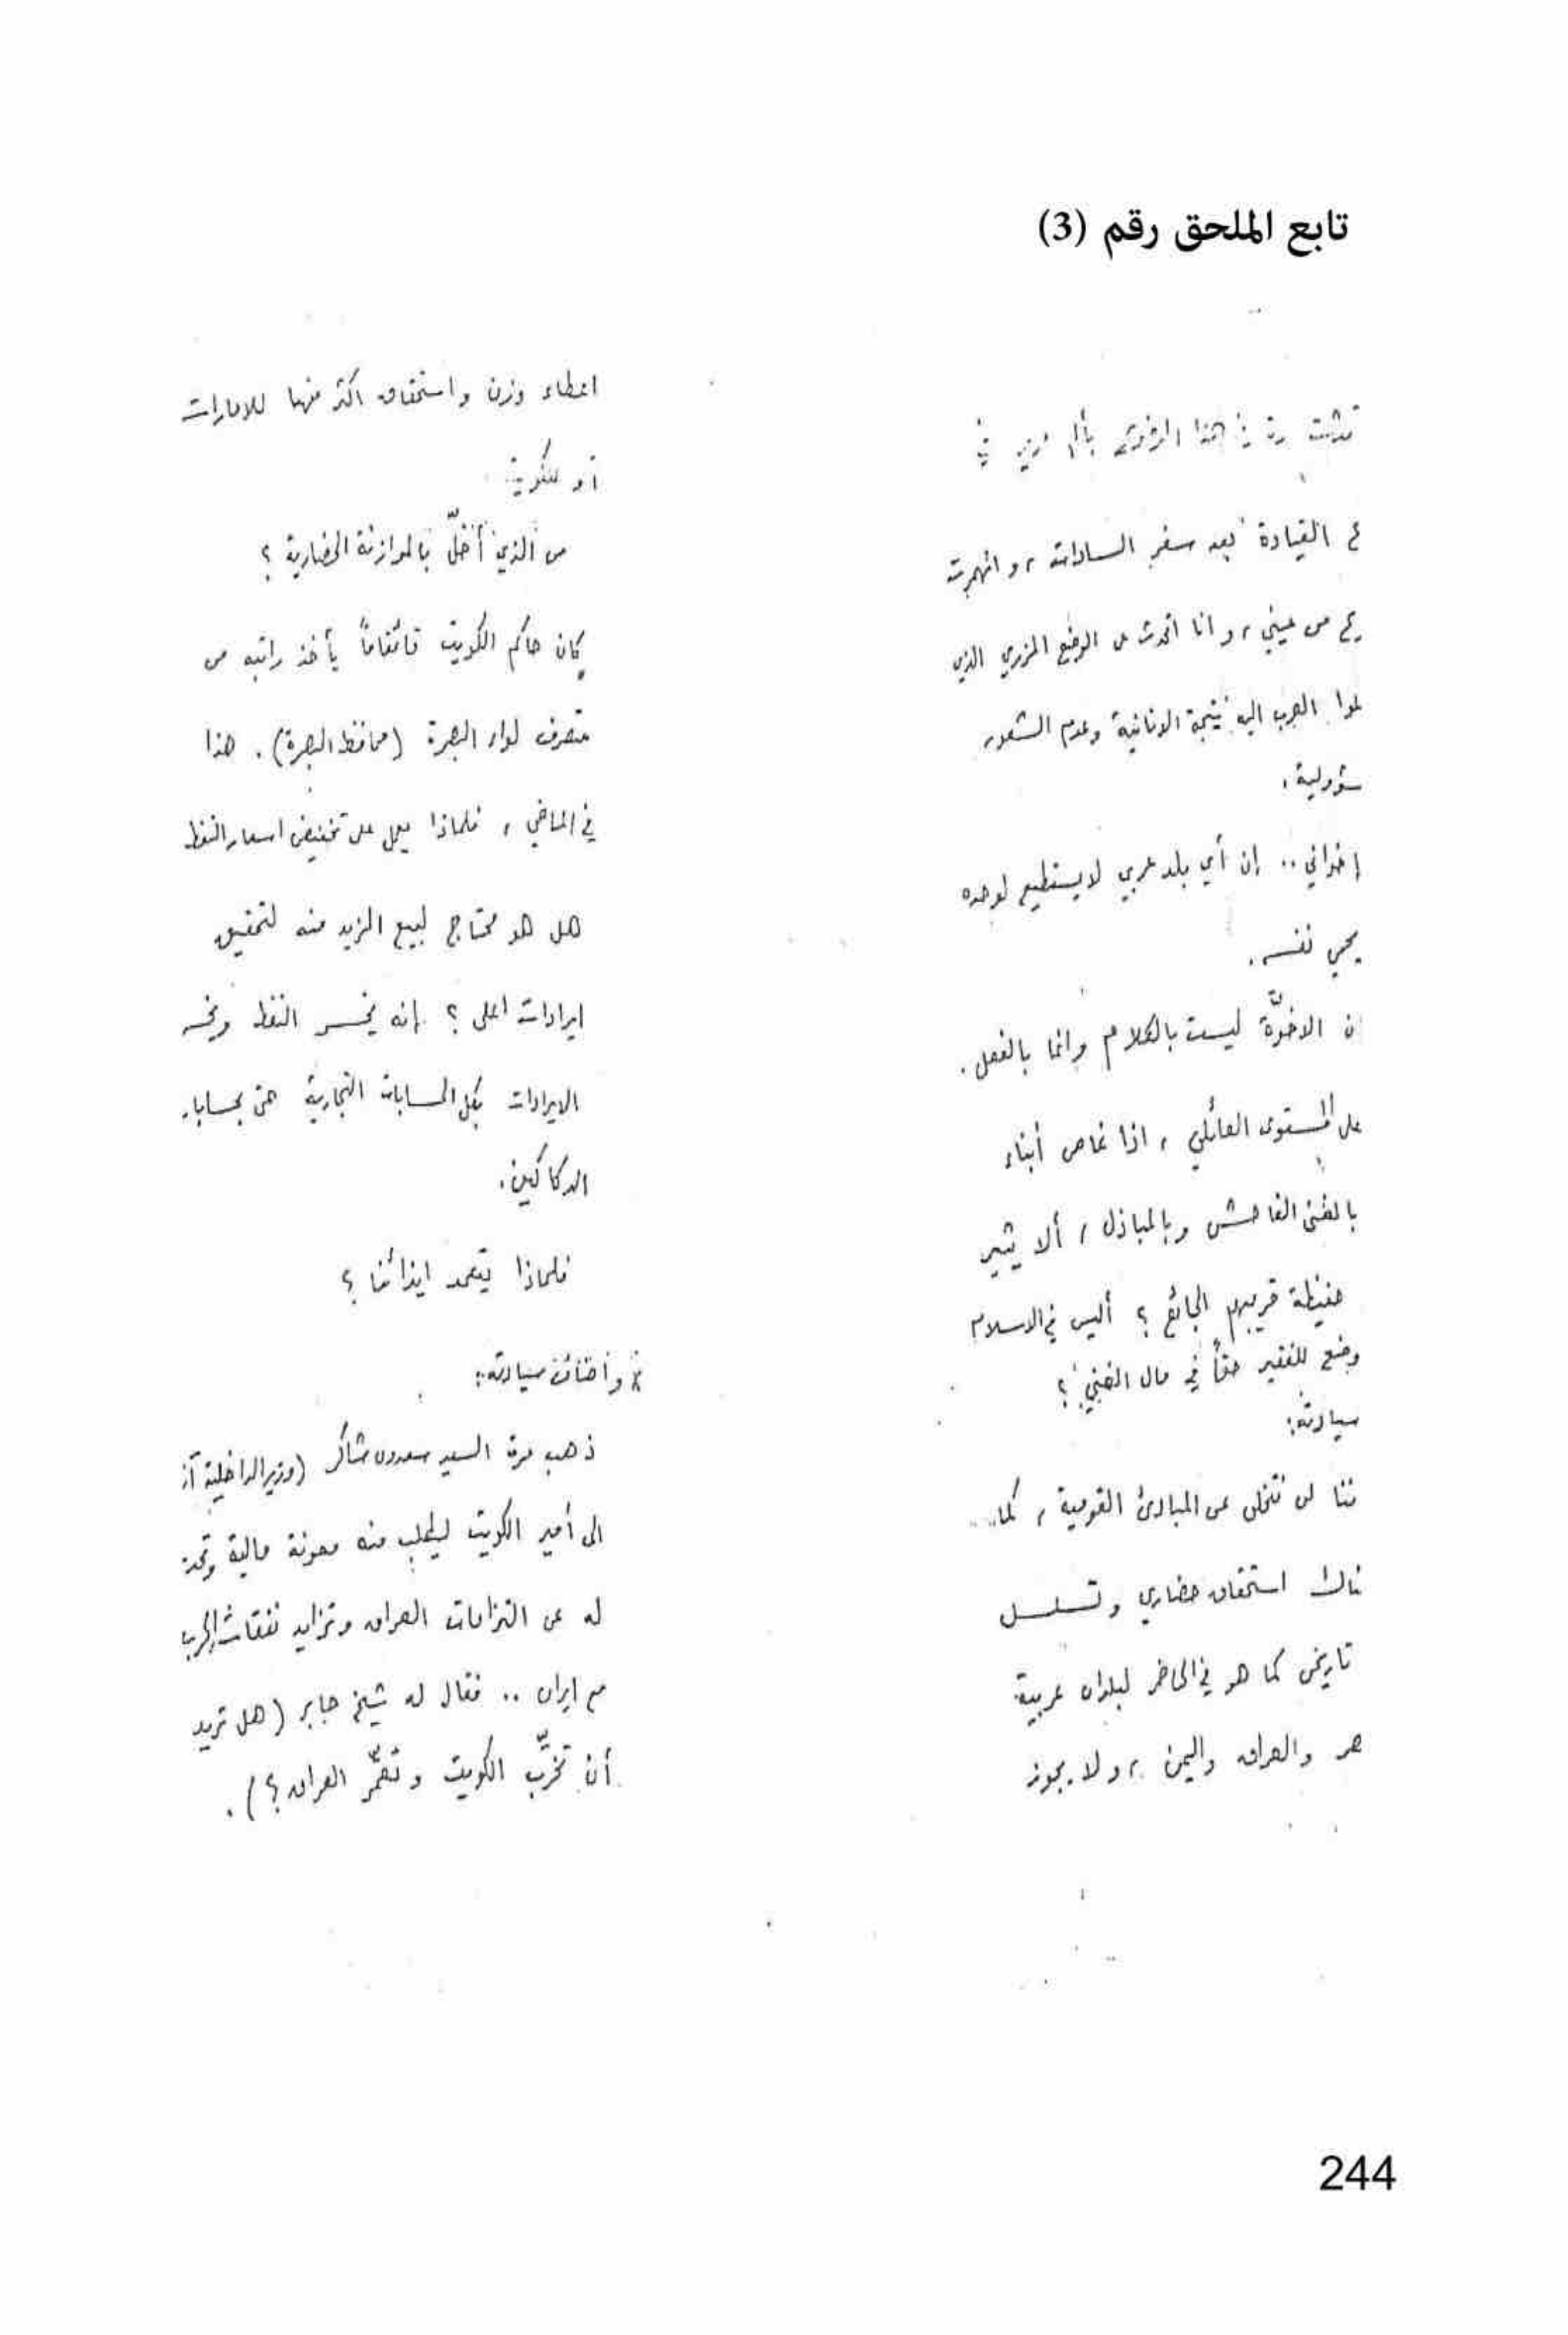 تابع الملحق رقم (3)
تحدثت مرة في هذا الموضوع بألم في
ع القيادة بعد سفر السادات، وانهمرت
من عيني، وانا اتحدث عن الوضع المزري الذي
العرب اليه نتيجة الانانية وعدم الشعور
سؤولية.
إخواني.. إن أي بلد عربي لايستطيع لوحده
يحمي نفسه.
ن الاخوّة ليست بالكلام وانما بالفعل.
على المستوى العائلي، اذا غاص أبناء
بالغنى الفاحش وبالمباذل، ألا يثير
حفيظة قريبهم الجائع؟ أليس في الاسلام
وضع للفقير حقاً في مال الغني؟
سيادته:
ننا لن نتخلى عن المبادئ القومية، كما..
ناك استحقاق حضاري وتسلسل
تاريخي كما هو في الحاضر لبلدان عربية
صر والعراق واليمن، ولا يجوز
اعطاء وزن واستحقاق اكثر منها للامارات
أو للكويت.
من الذي أخلّ بالموازنة الحضارية؟
كان حاكم الكويت قائمقاماً يأخذ راتبه من
متصرف لواء البصرة (محافظ البصرة). هذا
في الماضي، فلماذا يعمل على تخفيض اسعار النفط
هل هو محتاج لبيع المزيد منه لتحقيق
ايرادات اعلى؟ إنه يخسر النفط ويخسر
الايرادات بكل الحسابات التجارية حتى بحسابا
الدكاكين.
فلماذا يتعمد ايذائنا؟
* وأضاف سيادته:
ذهب مرة السيد سعدون شاكر (وزير الداخلية آنذ
الى أمير الكويت ليطلب منه معونة مالية وتحدث
له عن التزامات العراق وتزايد نفقات الحرب
مع ايران.. فقال له شيخ جابر (هل تريد
أن تخرّب الكويت وتعمّر العراق؟).
244